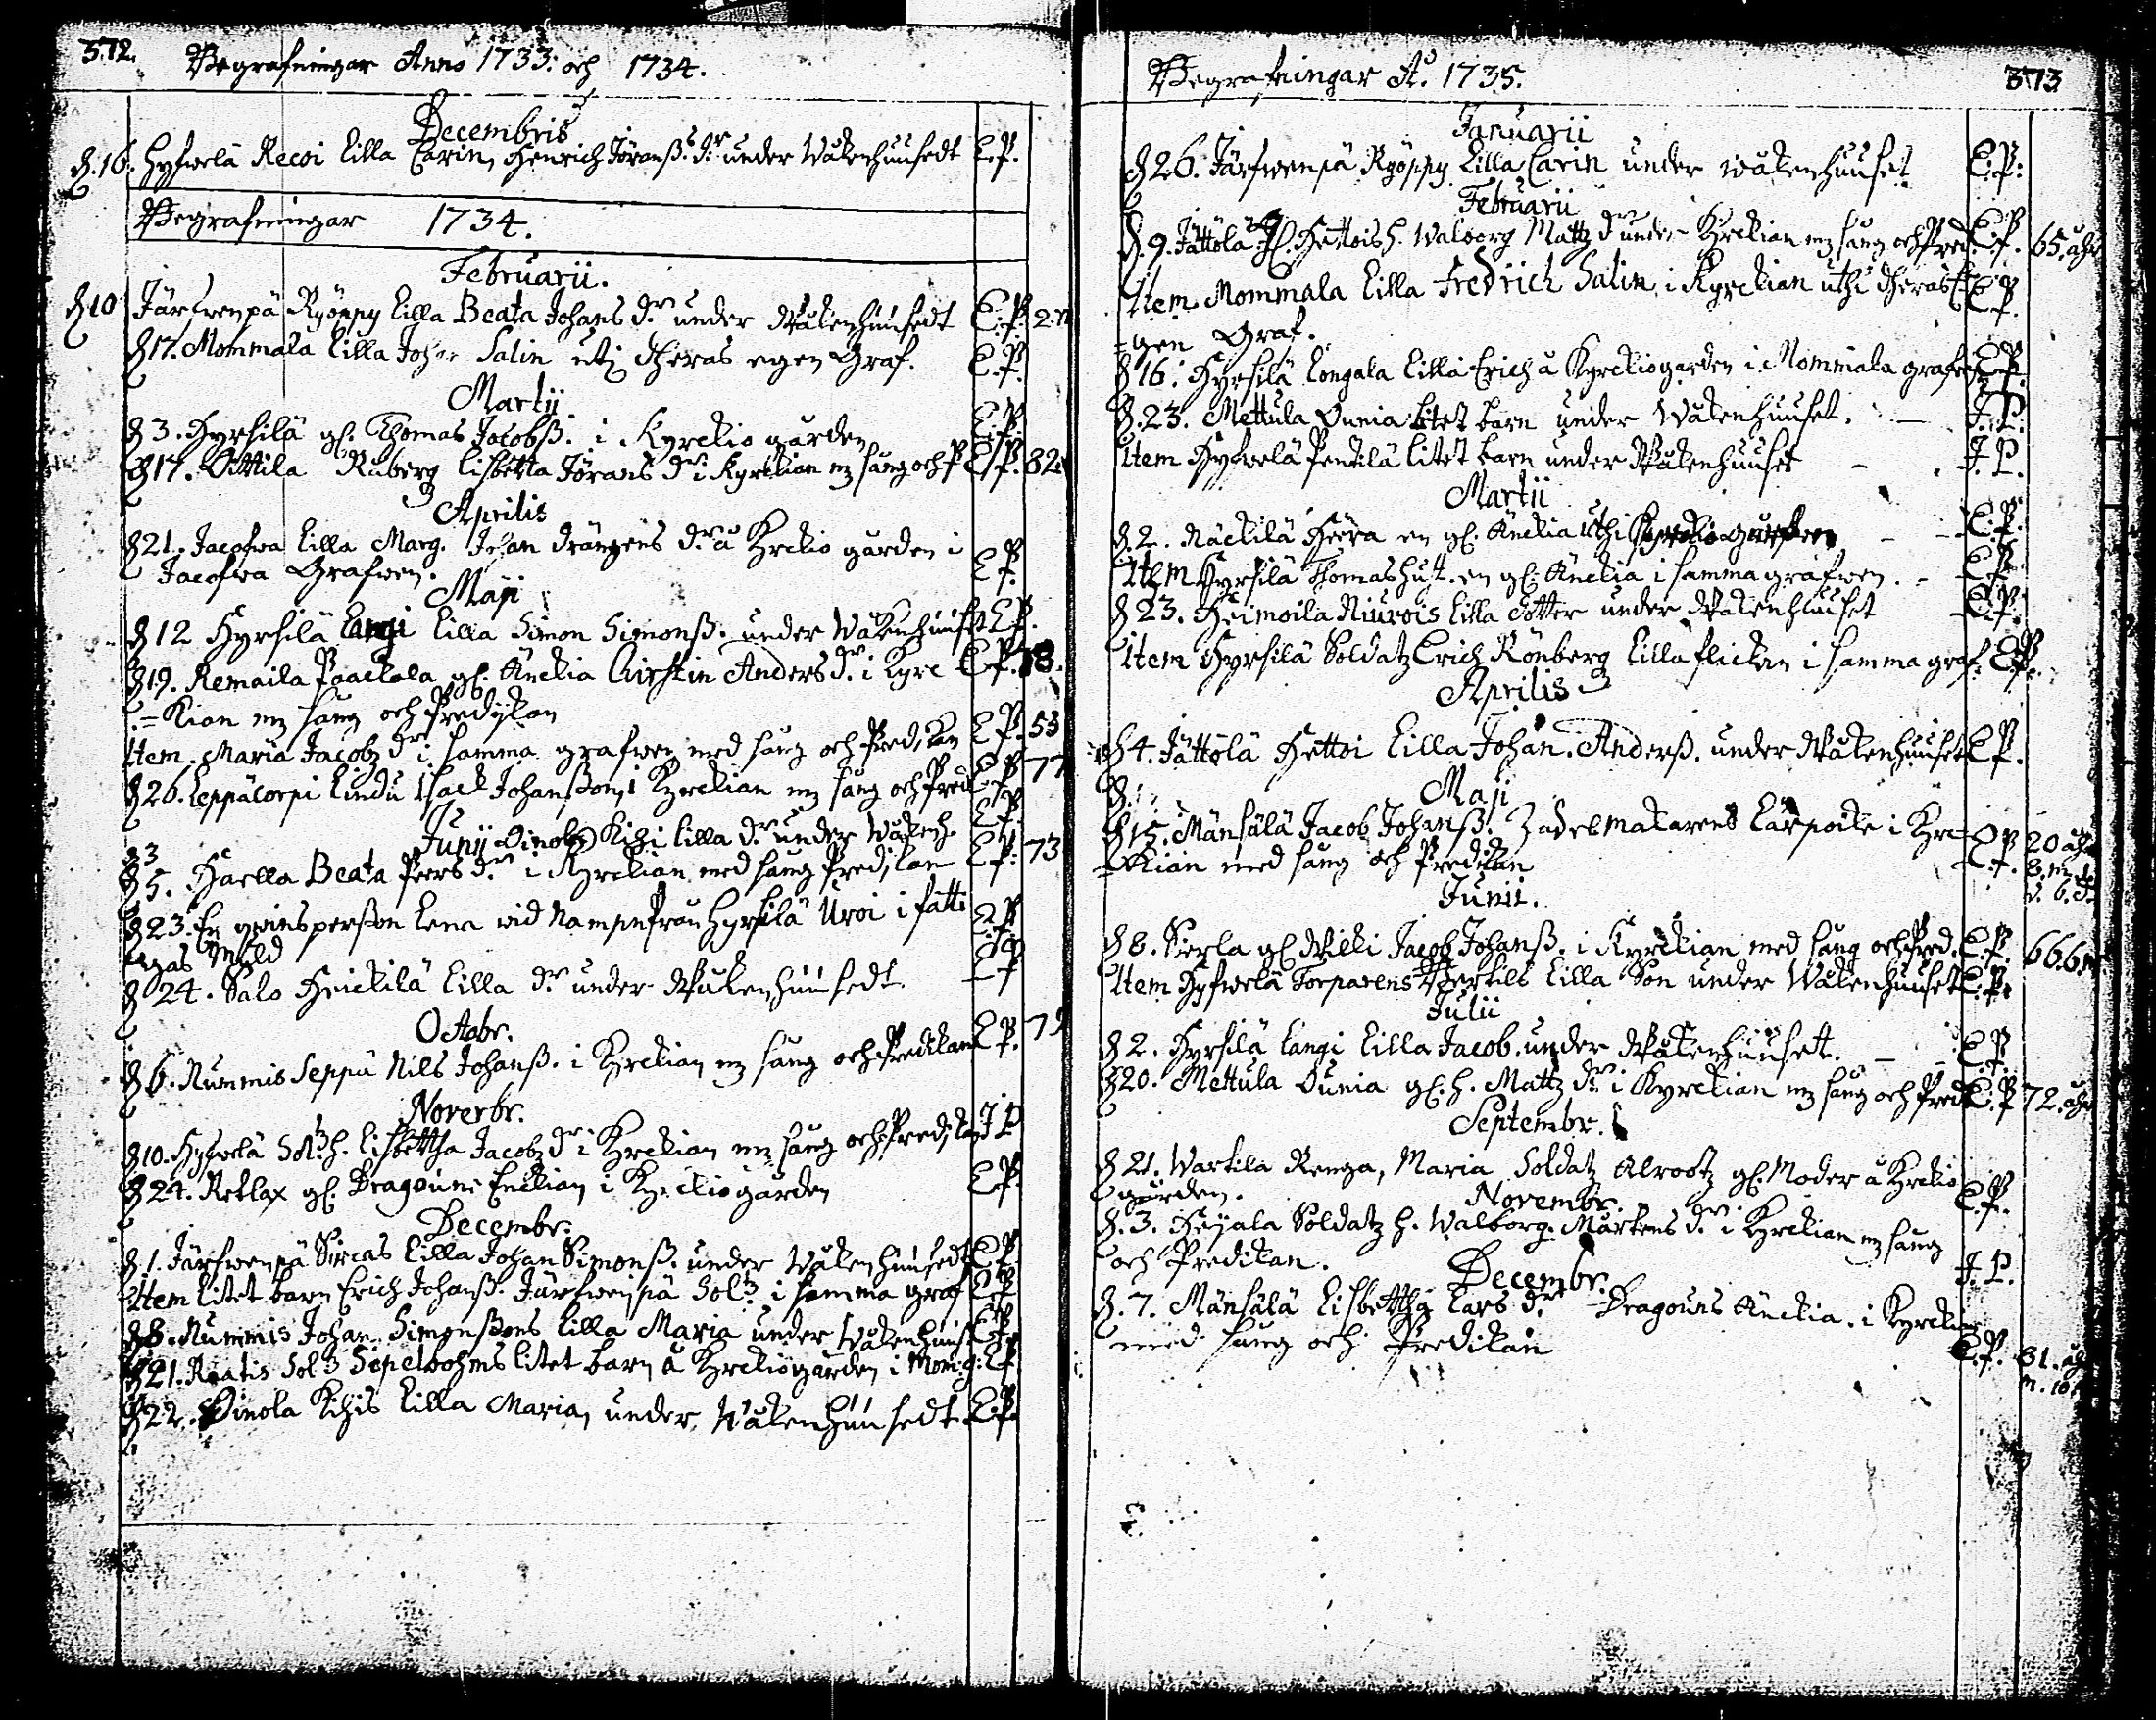 372. Begrafningar Anno 1733: och 1734.
Decembris
d. 16. Hyfwelä Recoi lilla Carin, Henrich Jöranß. dr. under Wåkenhuusedt E.P.
Begrafningar 1734.
Februarii.
d 10 Järfwenpä Ryöppy lilla Beata Johans dr. under Wåkenhuusedt E.P. 2.
d 17. Mommala lilla Johan Salin uti theras egen Graf. E.P.
Martij
d 3. Hyrsilä gl. Thomas Jacobß. i Kyrckio gården E.P.
d 17. Outtila Råberg Lisbetta Jörans dr. i Kyrckian m sång och P E.P. 82
Aprilis
d 21. Jacofwa lilla Marg. Johan drängens dr. å Kyrckio gården i
Jacofwa Grafwen. E.P.
Maji
d 12 Hyrsilä Langi lilla Simon Simonß. under Wåkenhuuset E.P.
d 19. Remaila Paackala gl. Änckia Cirstin Anders dr. i Kyrc E.P. 78.
=kian m sång och Predijkan
Item. Maria Jacobz dr. i samma grafwen med sång och Predikan E.P. 53
d 26. Leppäcorpi Lindu Isack Johanßon, i Kyrckian m sång och Pred E.P. 77
Junij
d 3 Oinola Kihi lilla dr. under Wåkenh. E.P.
d 5. Haella Beata Peers dr. i Kyrckian med sång Predikan E.P. 73
d 23. En qwinsperßon Lena wid Nampn från Hyrsilä Uroi i fatti
gas Mull E.P.
d 24. Salo Heickilä lilla dr. under Wåkenhuusedt E.P.
Octobr.
d 6. Nummis Seppä Nils Johanß. i Kyrckian m sång och Predikan E.P. 79
Noverbr.
d 10. Hyfwelä Solt. h. Lisbettha Jacobz dr. i Kyrckian m sång och Predikan J.P
d 24. Retlax gl. Dragouns Enckian i Kyrckiogården E.P.
Decembr:
d. 1. Järfwenpä Sircas lilla Johan Simonß. under Wåkenhuusedt E.P
Item litet barn Erich Johanß. Järfwenpä Solt. i samma graf E.P
d 8. Nummis Johan Simonßons lilla Maria under Wåkenhuus. E.P.
d 21. Raatis Solt. Sepelbohms litet barn å Kyrckiogården i Mom: g: E.P
d 22. Oinola Kihis lilla Maria, under Wåkenhuusedt E.P.
Begrafningar Ao. 1735. 373
Januarii
d 26. Järfwenpä Ryöppy Lilla Carin under wåkenhuuset E.P.
Februarii
d. 9. Jättölä gl. Hettois h. Walborg Mattz dr under Kyrckian m sång och Pred E.P. 65. åhr
Item Mommala lilla Fredrich Salin i Kyrckian uthi theras E= E.P.
=gen Graf.
d 16. Hyrsilä Longala lilla Erich å Kyrckiogården i Mommala grafwen E.P.
d. 23. Mettula Ounia litet barn under Wåkenhuuset. — J.P.
Item Hyfwelä Pentilä litet barn under Wåkenhuuset - J.P.
Martii
d. 2. Näckilä Heera en gl. Änckia uthi E.P.
Item Hyrsilä Thomas hust. en gl. Änckia i samma grafwen. - E.P.
d 23. Heimoila Niurois lilla dotter under Wåkenhuuset E.P.
Item Hyrsilä Soldatz Erich Rönberg lilla flickan i samma graf. E.P.
Aprilis
d 4. Jättölä Hettoi Lilla Johan. Anderß. under Wåkenhuuset E.P.
Maji
d 15. Mänsälä Jacob Johanß. Zadelmakarens Lärpoike i Kyrc= E.P. 20 åhr
=kian med sång och Predikan 8. m.
d. 6. d.
Junii.
d 8. Sierla gl. Wilki Jacob Johanß. i Kyrckian med sång och Pred. E.P. 66. 6 m
Item Hyfwelä Torparens Bertils lilla Son under Wåkenhuuset E.P.
Julii
d 2. Hyrsilä Langi lilla Jacob. under Wåkenhuusett. — E.P.
d 20. Mettula Ounia gl. h. Mattz dr. i Kyrckian m sång och Pred E.P 72. åhr
Septembr.
d 21. Wartila Renga, Maria Soldatz Alrootz gl. Moder å Kyrckio
gården. E.P.
Novembr.
d. 3. Heijala Soldatz h. Walborg. Mårtens dr. i Kyrckian m sång
och Predikan. J.P.
Decembr.
d. 7. Mänsälä Lisbettha Lars dr. Dragouns Änckia. i Kyrckian
med sång och Predikan E.P. 81. åhr
m. 10